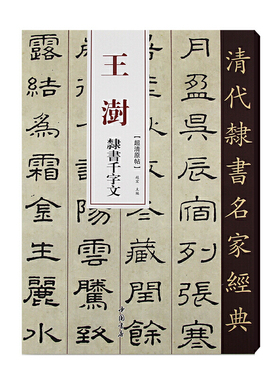 清代隸書名家經典
王澍
隸書千字文
【超清原帖】
主編
中國書店
月盈昃辰宿列張寒
藏閏餘
陽雲騰致
露結為霜金生麗水